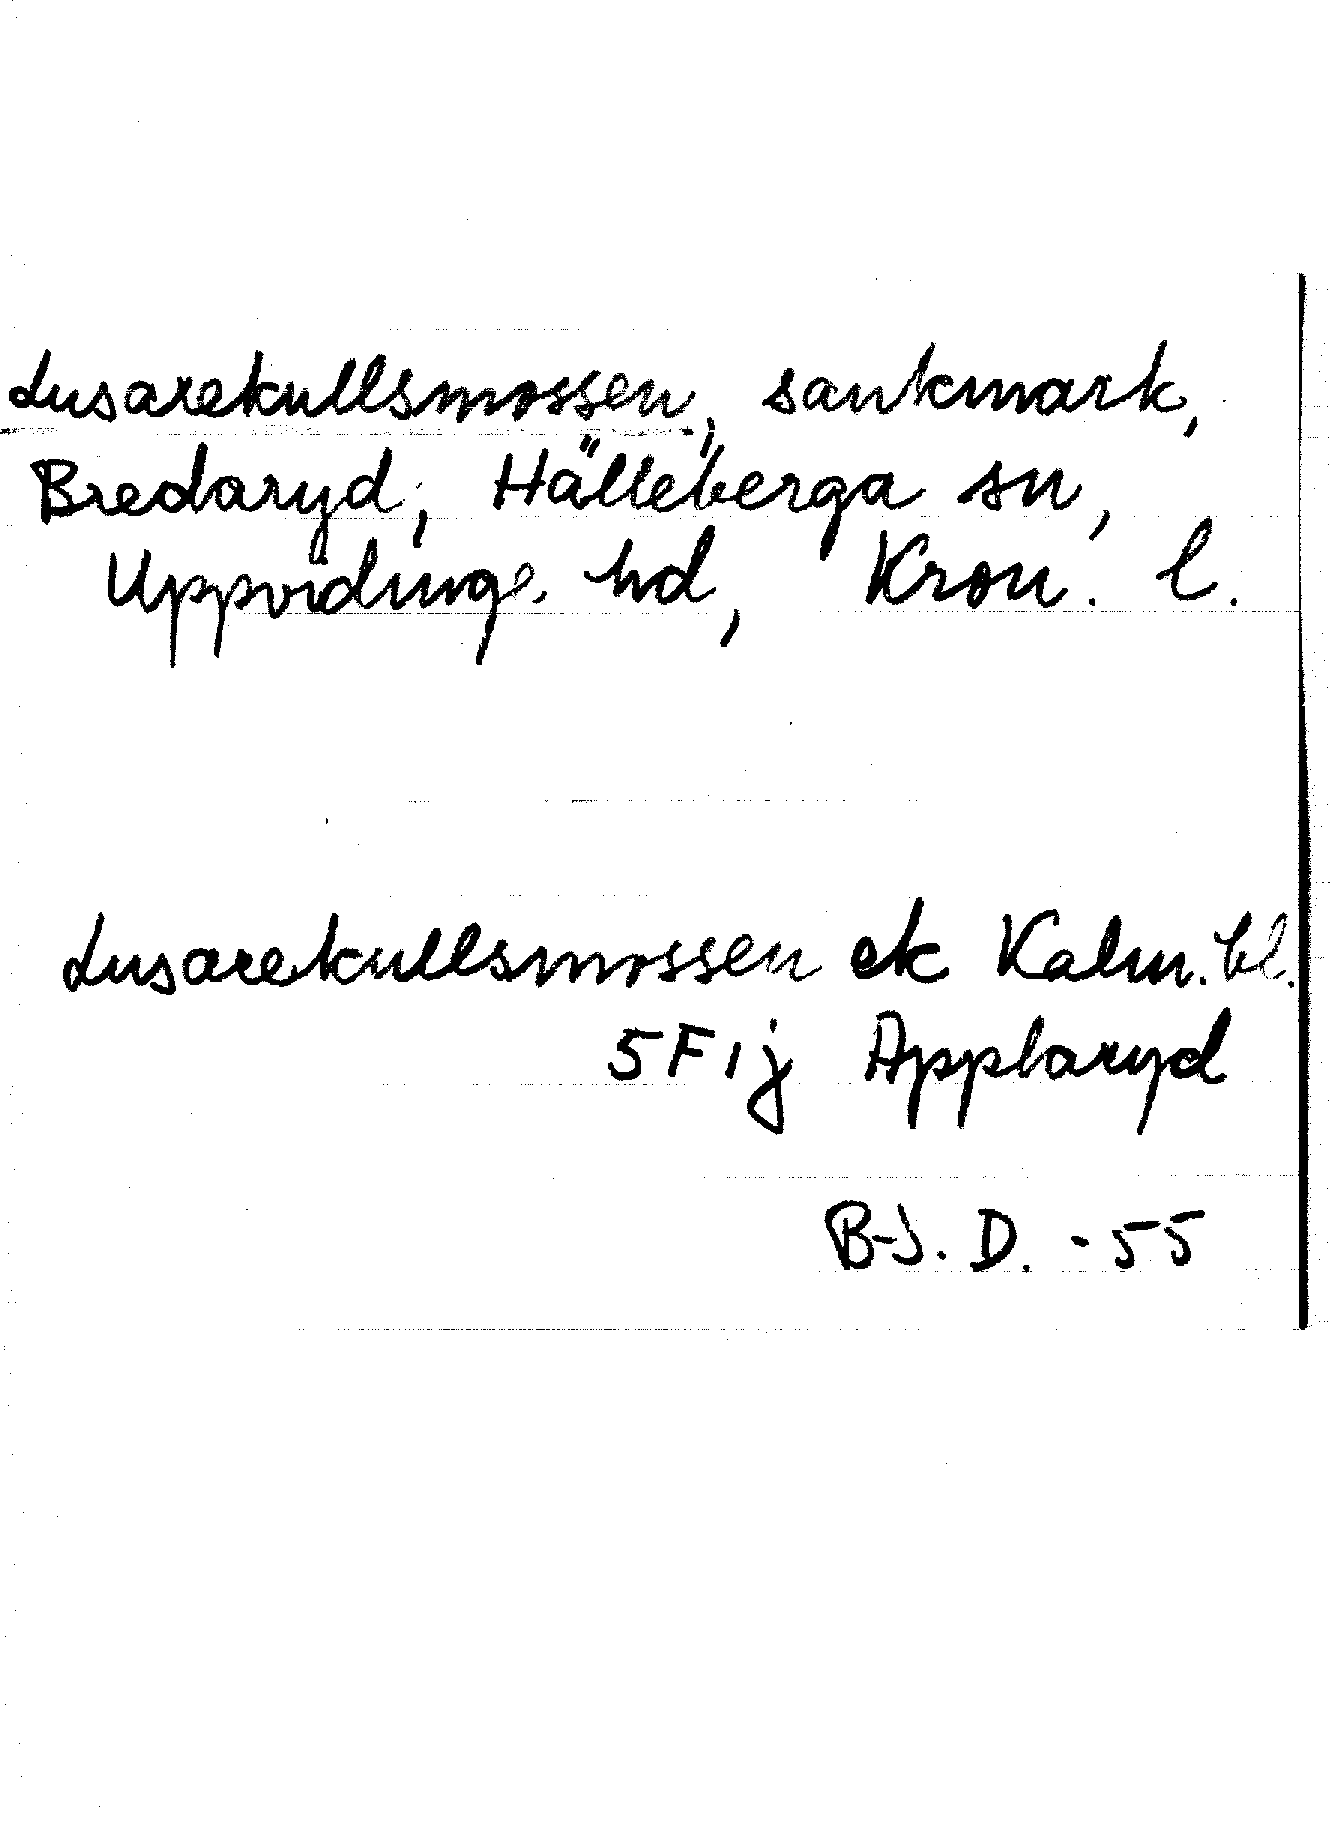 Lusarekullsmossen, sankmark,
Bredaryd, Hälleberga sn,
Uppvidinge hd, Kron. l.
Lusarekullsmossen ek Kalm. bl.
5F1j Applaryd
B-J. D. -55